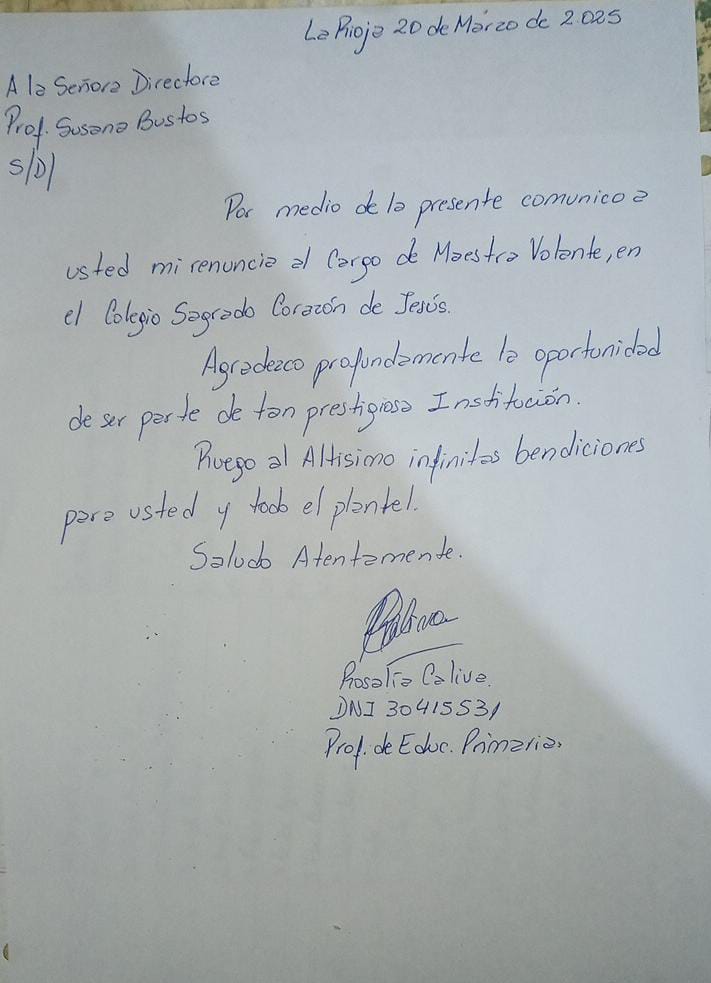 La Rioja 20 de Marzo de 2.025
A la Señora Directora
Prof. Susana Bustos
S/D/
Por medio de la presente comunico a
usted mi renuncia al Cargo de Maestra Volante, en
el Colegio Sagrado Corazón de Jesús.
Agradezco profundamente la oportunidad
de ser parte de tan prestigiosa Institución.
Ruego al Altisimo infinitas bendiciones
para usted y todo el plantel.
Saludo Atentamente.
Caliva
Rosalía Caliva.
DNI 30415531
Prof. de Educ. Primaria.